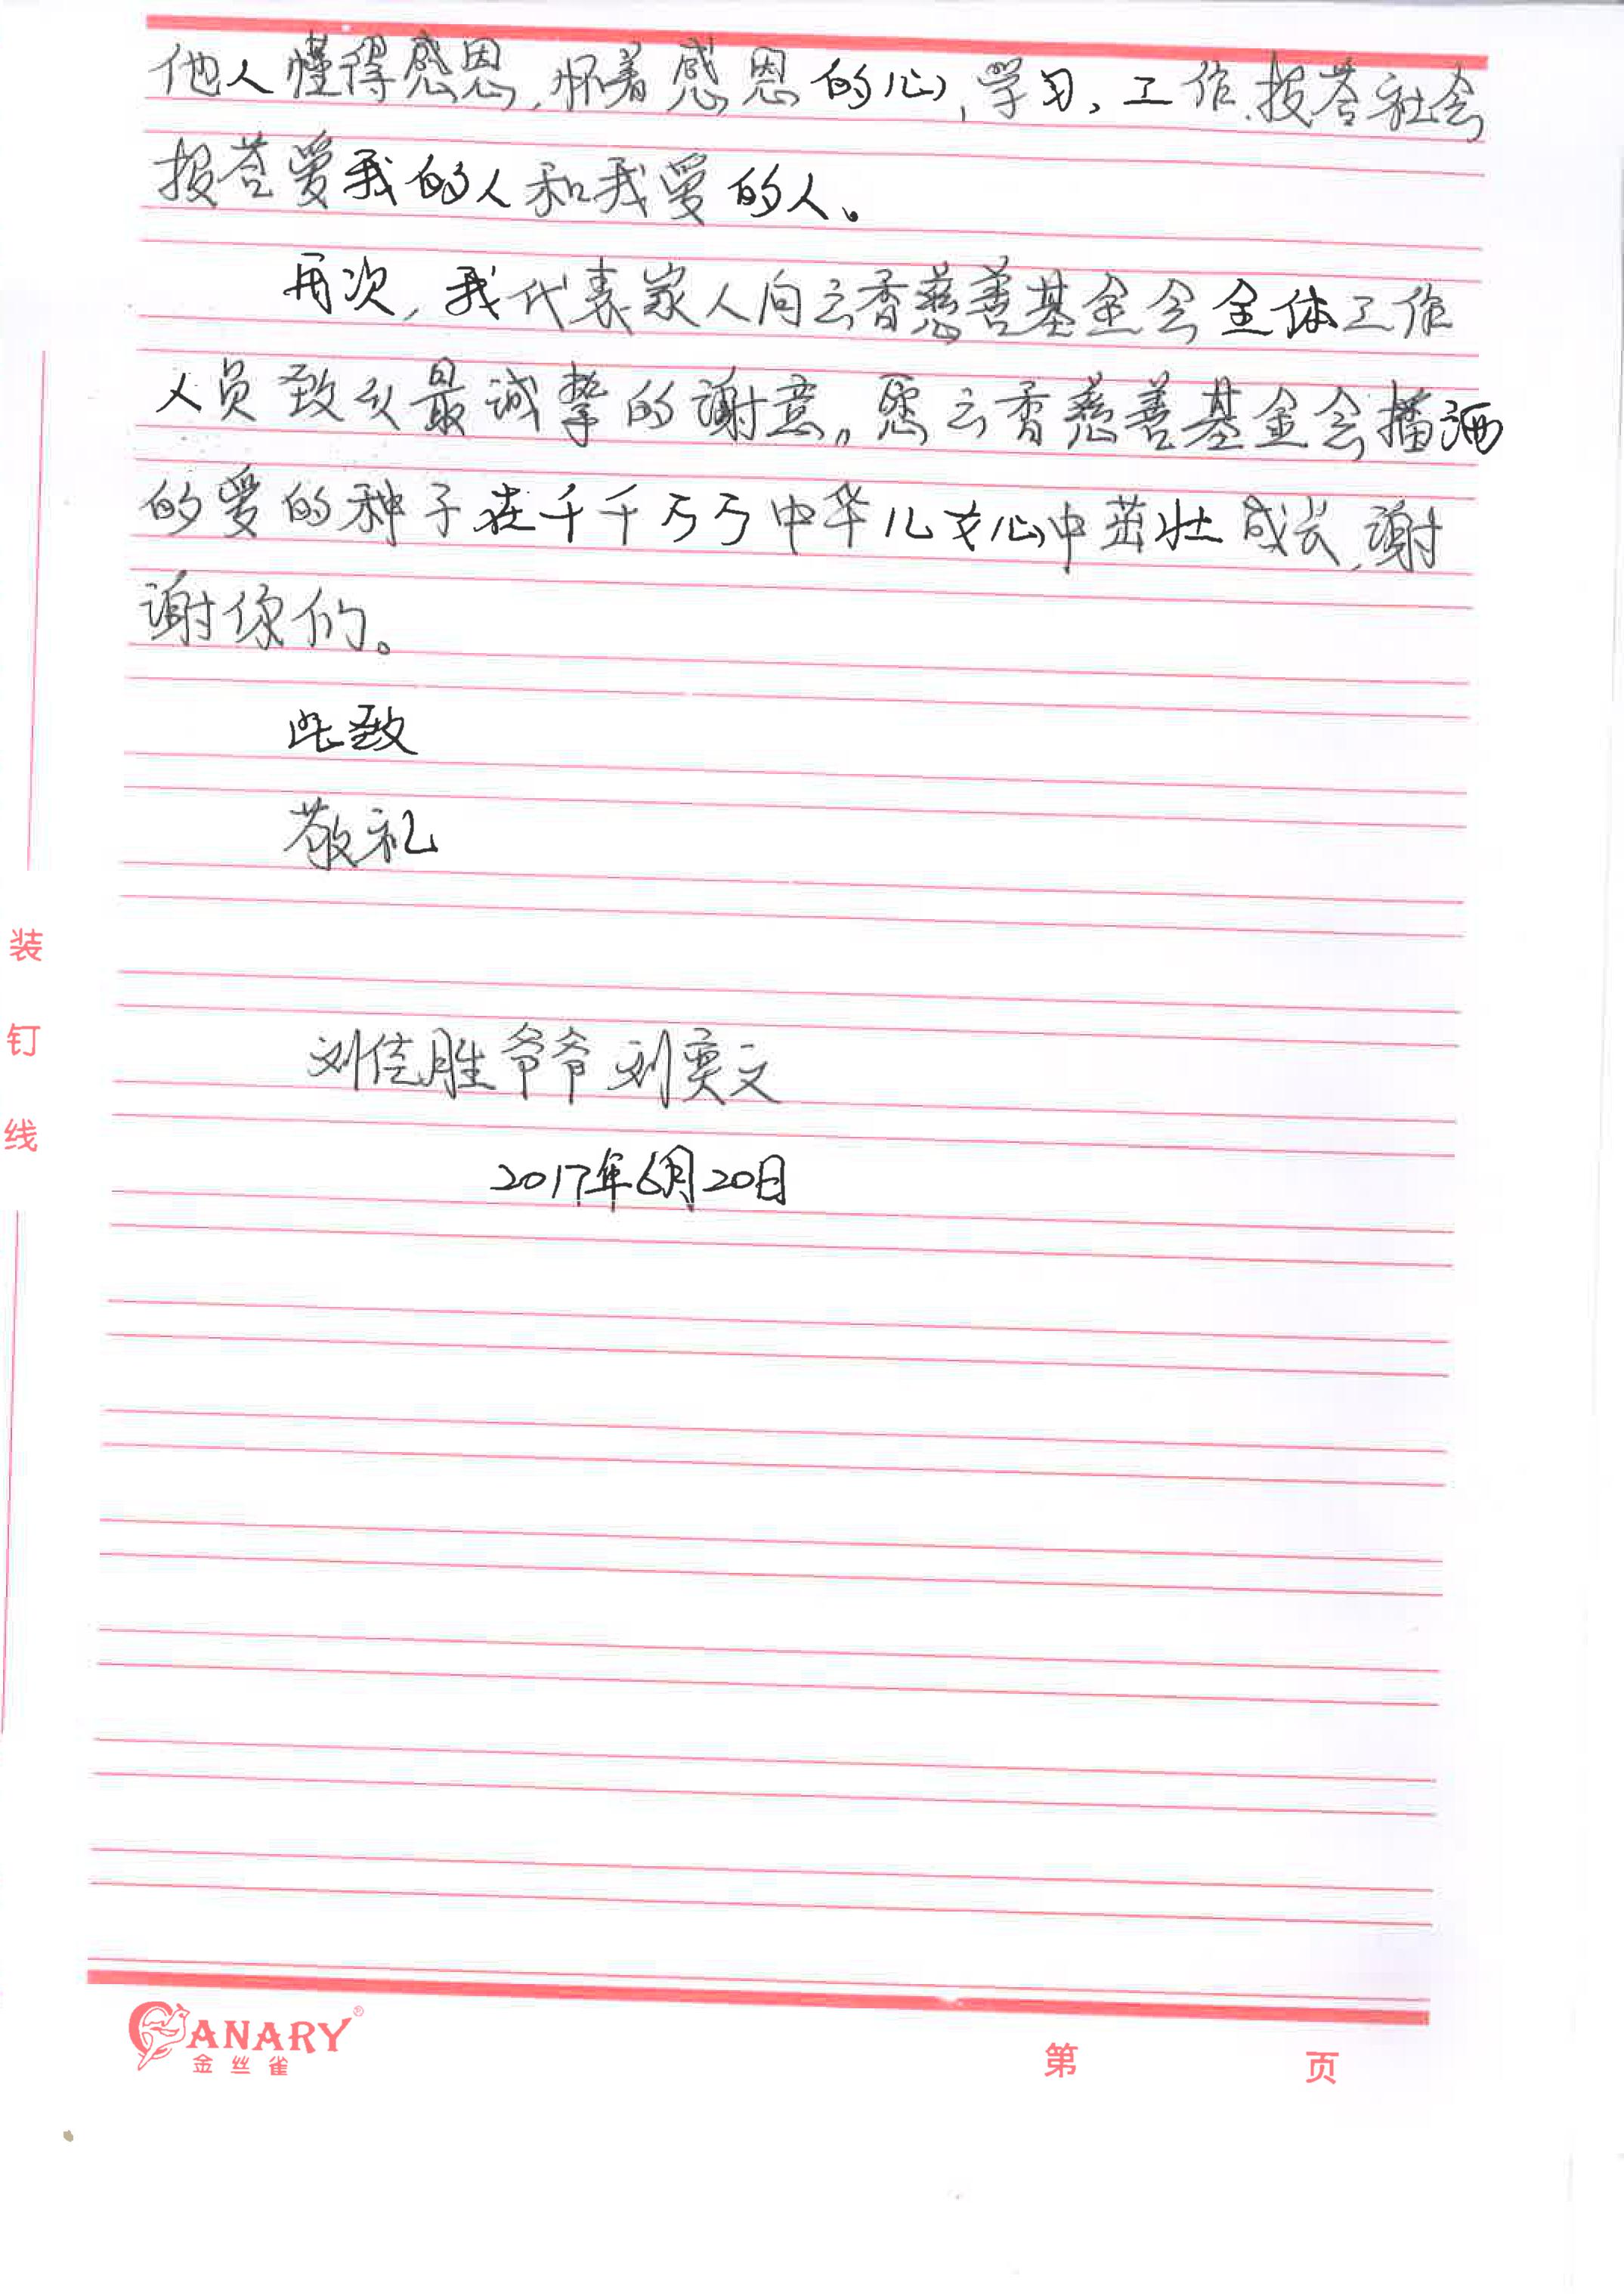 他人懂得感恩，怀着感恩的心，学习，工作，报答社会
报答爱我的人和我爱的人。
再次，我代表家人向云香慈善基金会全体工作
人员致以最诚挚的谢意。愿云香慈善基金会播洒
的爱的种子在千千万万中华儿女心中茁壮成长，谢
谢你们。
此致
敬礼
装
钉
线
刘佳胜爷爷 刘奕文
2017年6月20日
CANARY®
金丝雀
第 页